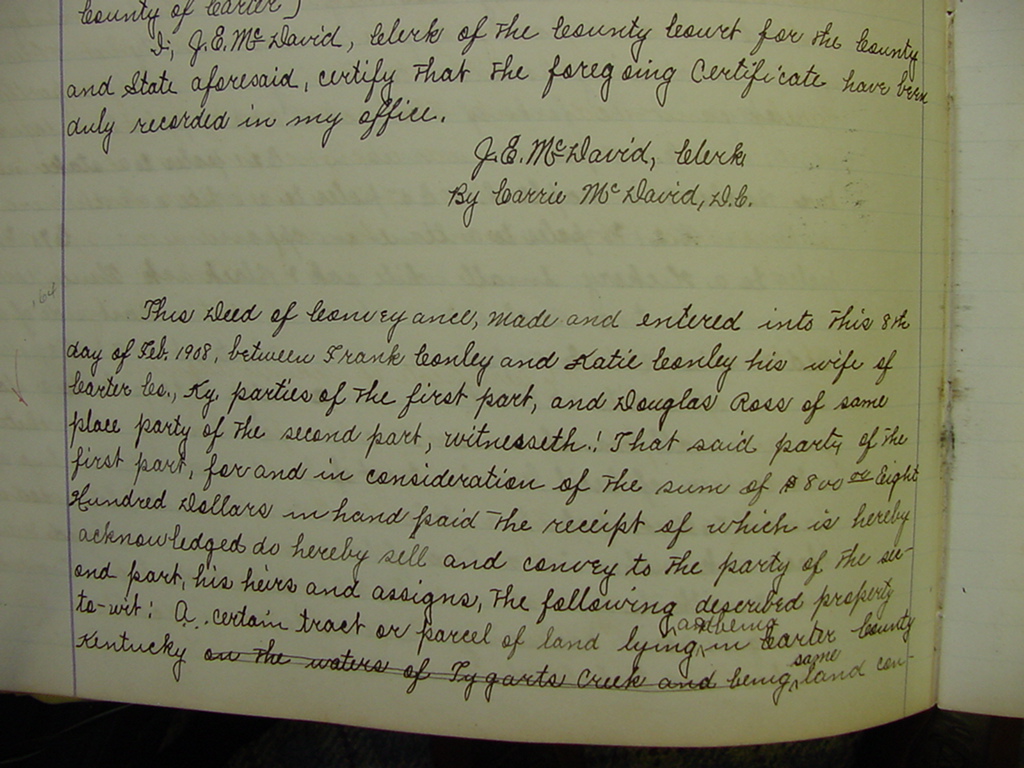 County of Carter }
I, J.E. McDavid, Clerk of the County Court for the County
and State aforesaid, certify that the foregoing Certificate have been
duly recorded in my office.
J.E. McDavid, Clerk
By Carrie McDavid, D.C.
This Deed of Conveyance, made and entered into this 8th
day of Feb. 1908, between Frank Conley and Katie Conley his wife of
Carter Co., Ky. parties of the first part, and Douglas Ross of same
place party of the second part, witnesseth: That said party of the
first part, for and in consideration of the sum of $800 00 Eight
Hundred Dollars in hand paid the receipt of which is hereby
acknowledged do hereby sell and convey to the party of the sec-
ond part, his heirs and assigns, the following described property
to-wit: A certain tract or parcel of land lying and being in Carter County
Kentucky on the waters of Tygarts Creek and being same land con-